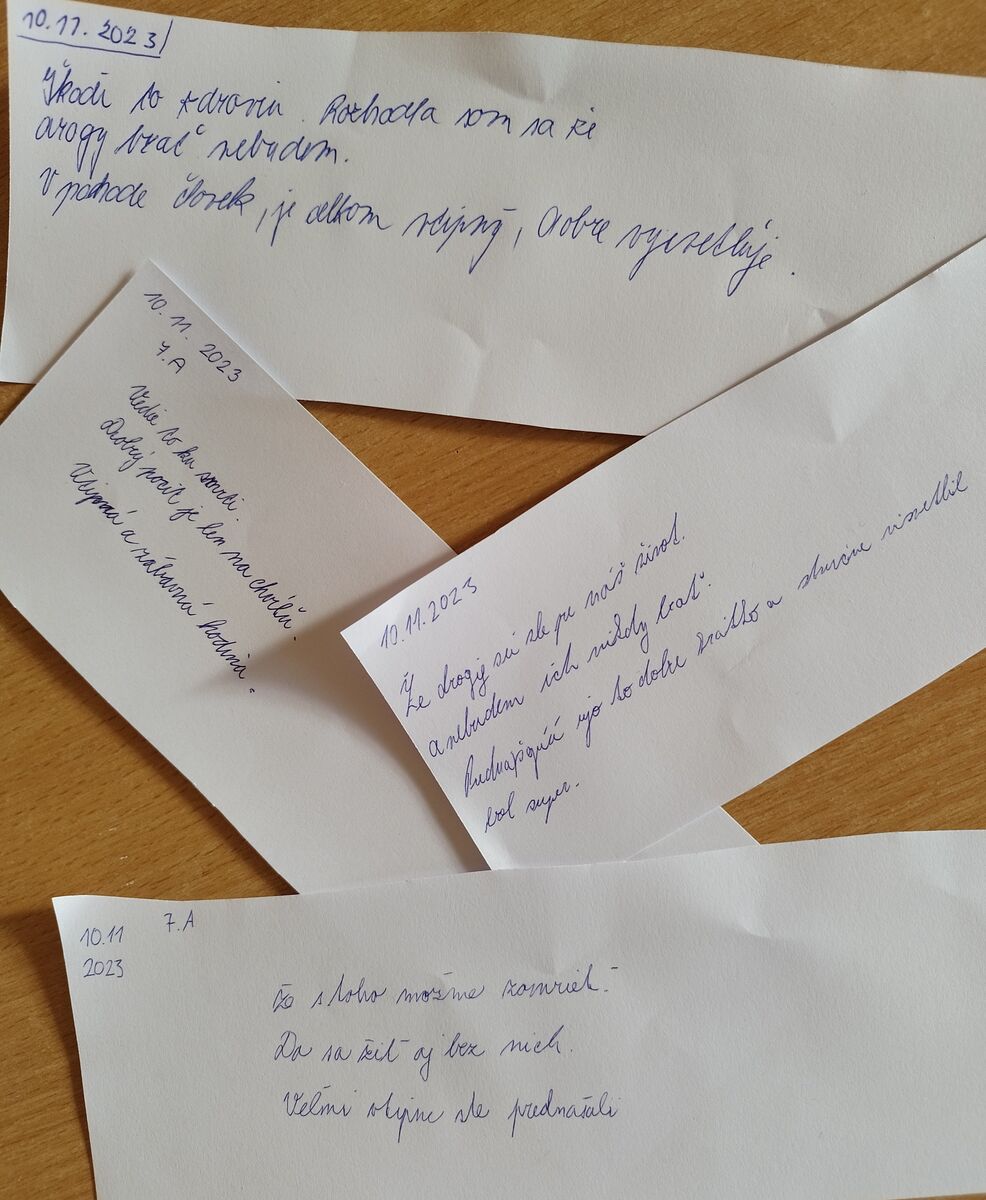 10.11.2023
Škodí to zdraviu. Rozhodla som sa že
drogy brať nebudem.
V pohode človek, je celkom vtipný, dobre vysvetľuje.
10.11.2023
7.A
Vedie to ku smrti.
Dobrý pocit je len na chvíľu.
Vtipná a zábavná hodina.
10.11.2023
Že drogy sú zle pre náš život.
a nebudem ich nikdy brať.
ujo to dobre krátko a stručne visvetlil
bol super.
10.11
2023
7.A
Že s toho možme zomrieť.
Da sa žiť aj bez nich.
Veľmi vtipne ste prednašali